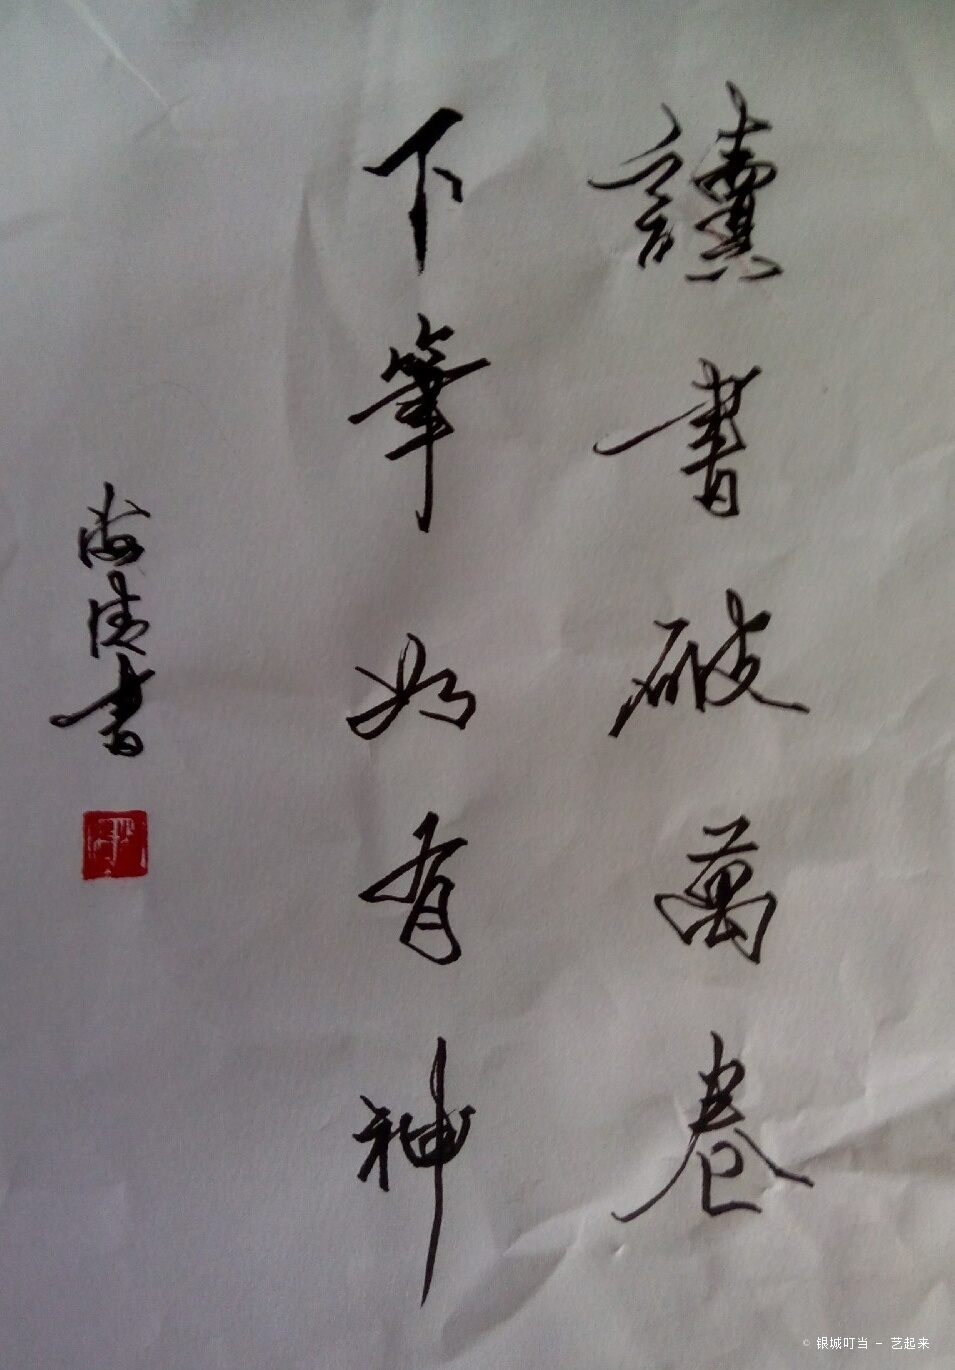 讀書破萬卷
下筆如有神
海清書
© 银城叮当 - 艺起来